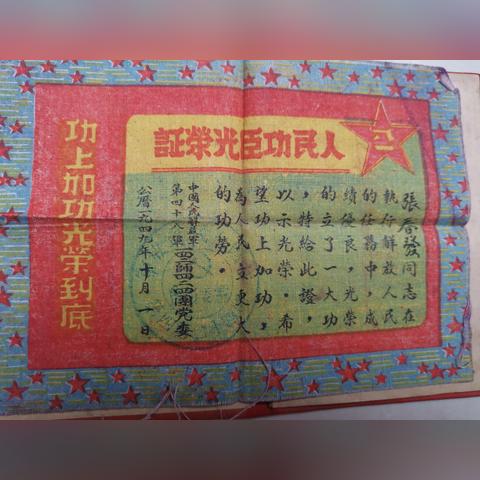 人民功臣光榮証
八一
張春發同志在
執行解放人民
的任務中，成
績優良，光榮
的立了一大功
，特給此證，
以示光榮。希
望功上加功，
為人民立更大
的功勞。
中國人民解放軍
第四十八軍一四二師四二四團党委
公曆一九四九年十月一日
功上加功光榮到底